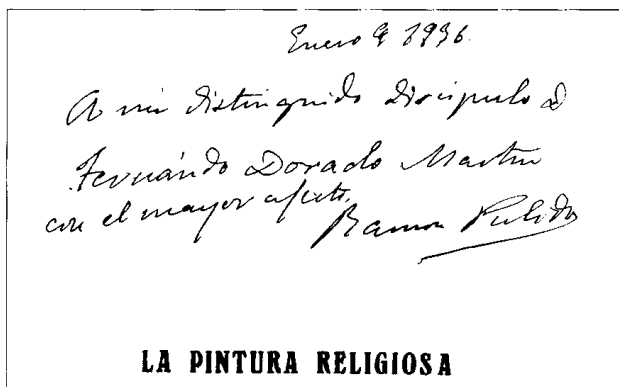 Enero 9 1936.
A mi distinguido discipulo D
Fernándo Dorado Martin
con el mayor afecto.
Ramon Pulido
LA PINTURA RELIGIOSA